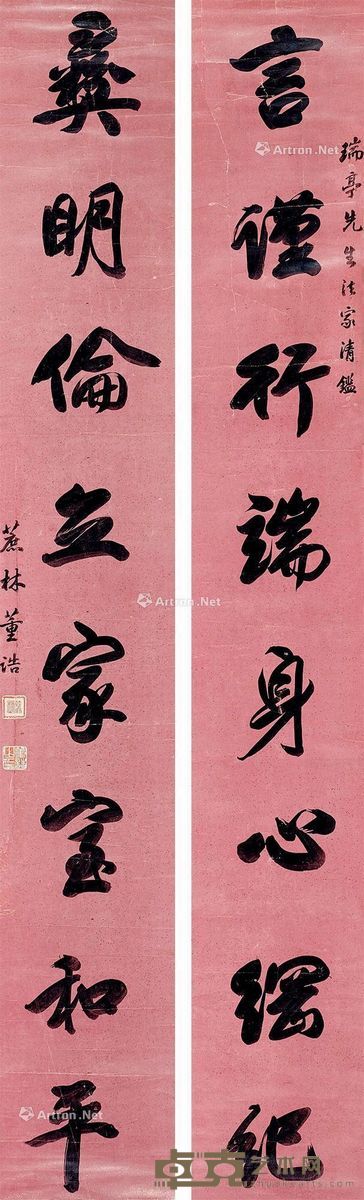 言謹行端身心綱紀
瑞亭先生法家清鑑
彝明倫立家室和平
蔗林董誥
Artron.Net
Artron.Net
Artron.Net
卓克艺术网